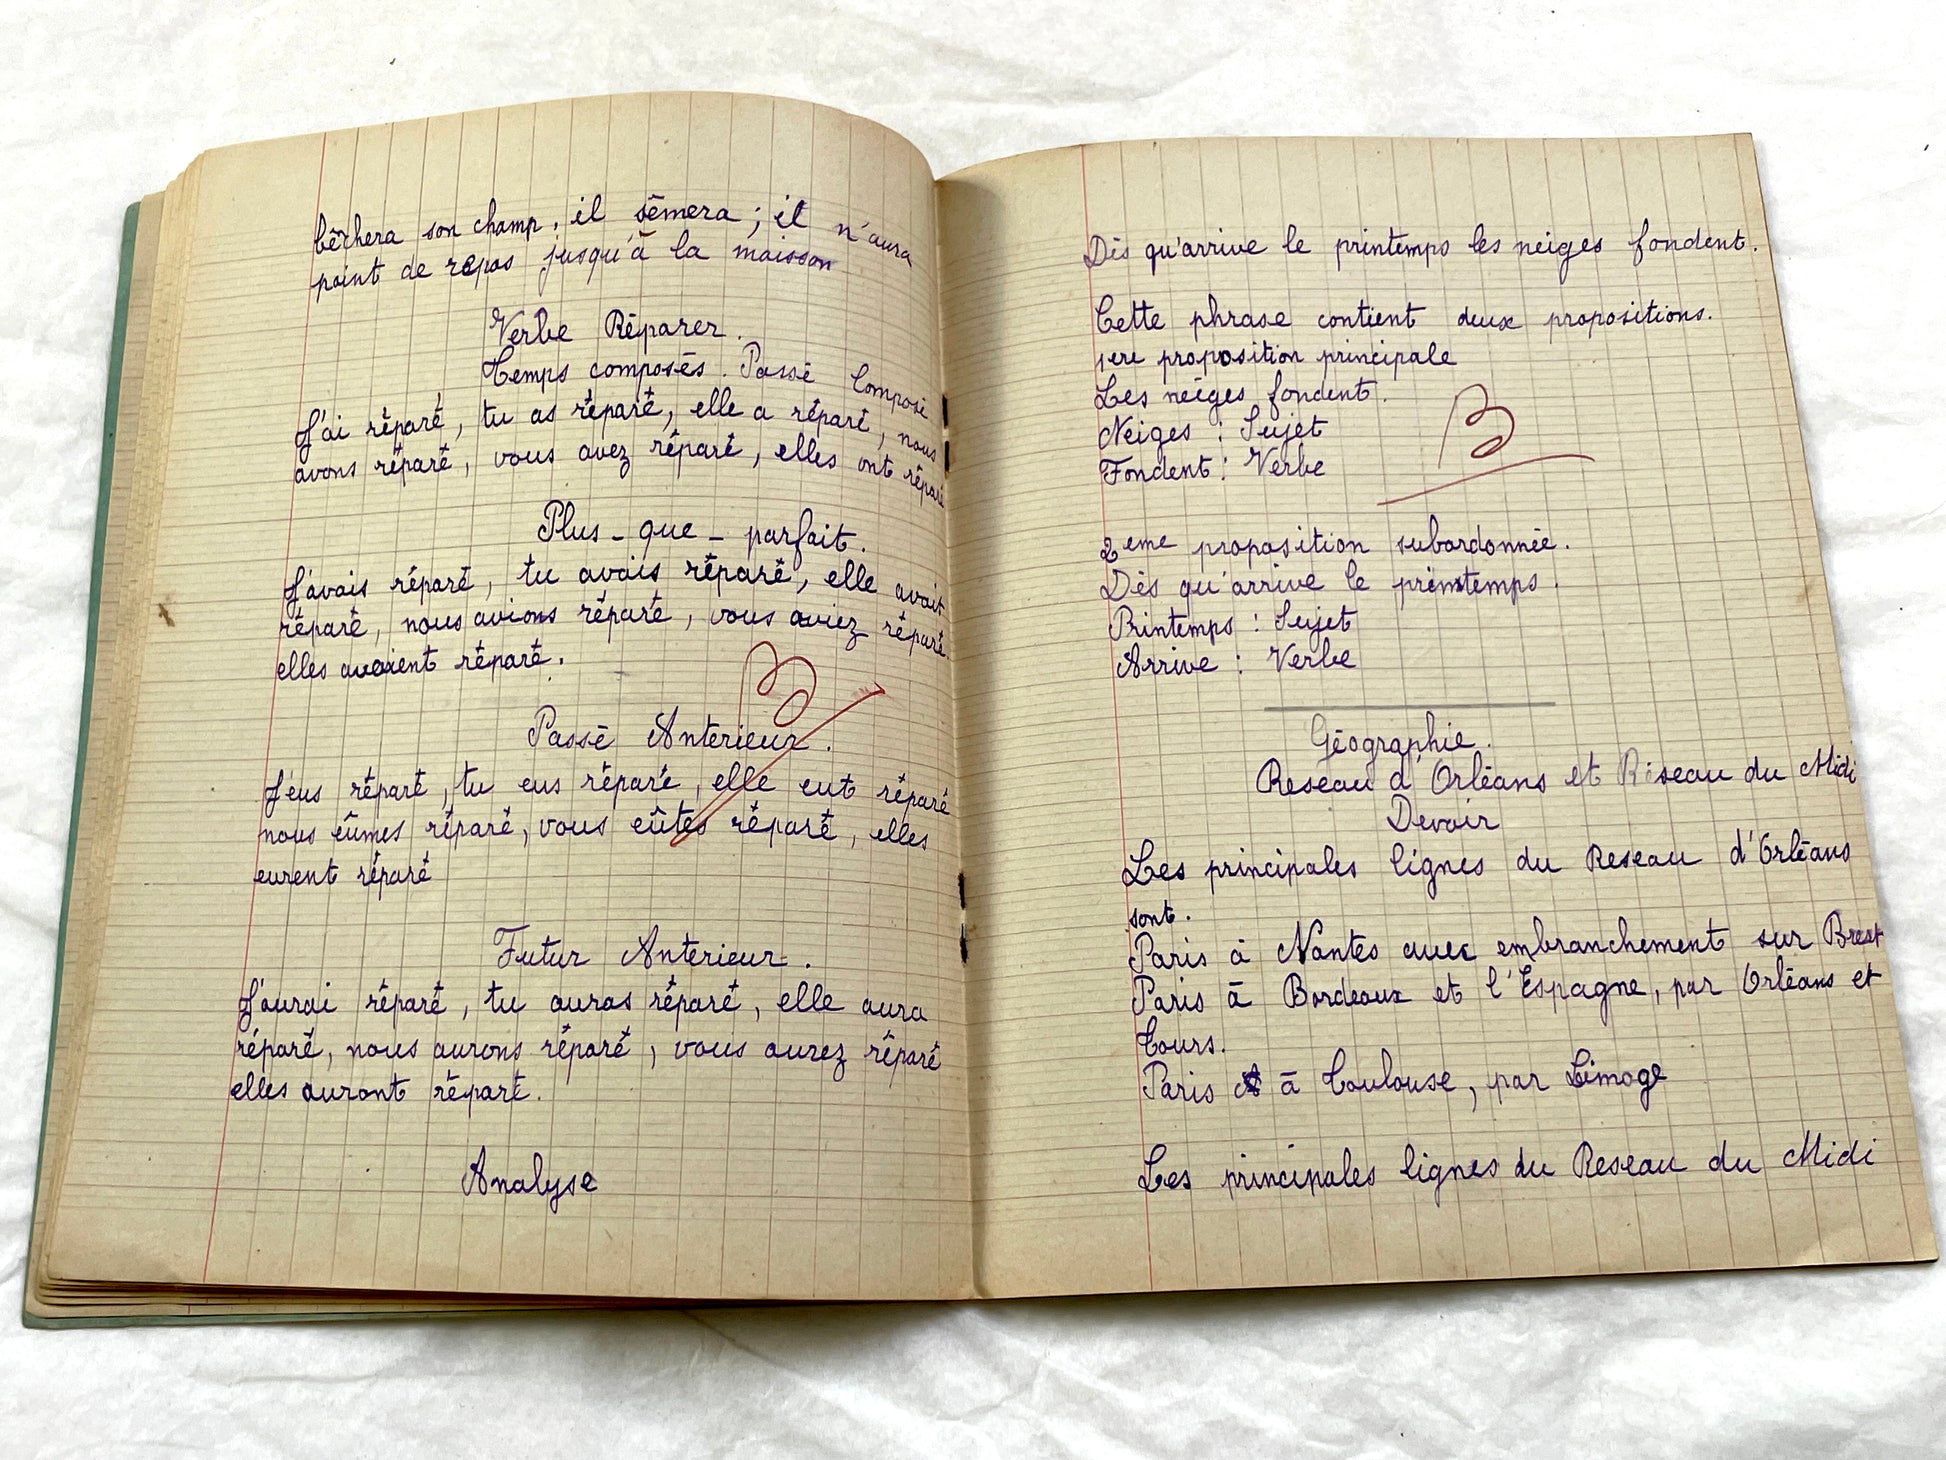 bêchera son champ, il sèmera ; il n'aura
point de repos jusqu'à la maison
Verbe Réparer.
Temps composés. Passé Composé
J'ai réparé, tu as réparé, elle a réparé, nous
avons réparé, vous avez réparé, elles ont réparé
Plus-que-parfait.
J'avais réparé, tu avais réparé, elle avait
réparé, nous avions réparé, vous aviez réparé.
elles avaient réparé.
B
Passé Antérieur.
J'eus réparé, tu eus réparé, elle eut réparé
nous eûmes réparé, vous eûtes réparé, elles
eurent réparé
Futur Antérieur.
J'aurai réparé, tu auras réparé, elle aura
réparé, nous aurons réparé, vous aurez réparé
elles auront réparé.
Analyse
Dès qu'arrive le printemps les neiges fondent.
Cette phrase contient deux propositions.
1ere proposition principale
Les neiges fondent.
B
Neiges : Sujet
Fondent : Verbe
2eme proposition subordonnée.
Dès qu'arrive le printemps.
Printemps : Sujet
Arrive : Verbe
Géographie.
Reseau d'Orléans et Réseau du Midi
Devoir
Les principales lignes du Reseau d'Orléans
sont.
Paris à Nantes avec embranchement sur Brest
Paris à Bordeaux et l'Espagne, par Orléans et
Tours.
Paris à Toulouse, par Limoge
Les principales lignes du Reseau du Midi